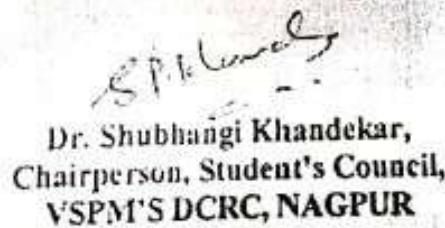 Dr. Shubhangi Khandekar,
Chairperson, Student's Council,
VSPM'S DCRC, NAGPUR